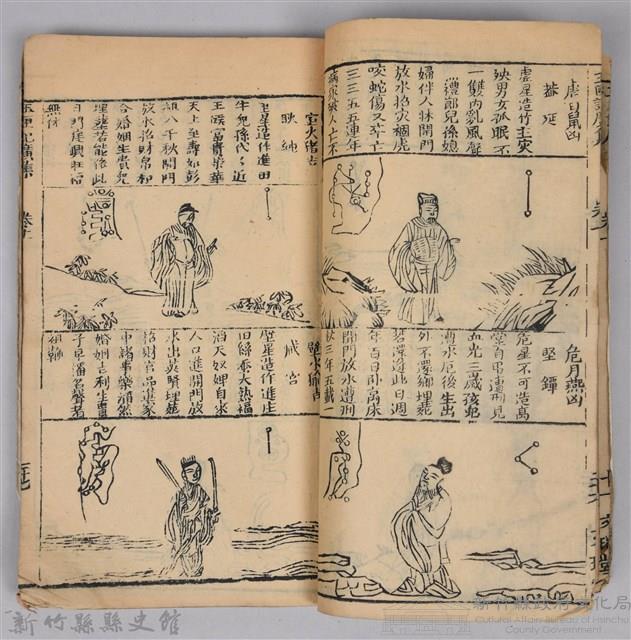 虛日鼠凶
蓋延
虛星造作主灾
殃男女孤眠不
一雙內乱風聲
無禮節兒孫媳
婦伴人牀開門
放水招灾禍虎
咬蛇傷又卒亡
三三五五連年
危月燕凶
堅鐔
危星不可造高
堂自吊遭刑見
血光三歲孩兒
遭水厄後生出
外不还鄉埋葬
若還逢此日週
年百日卧高床
開門放水遭刑
杖三年五載一
室火猪吉
耿純
室星造作進田
牛兒孫代代近
王侯富貴榮華
天上至壽如彭
祖八千秋開門
放水招財帛和
合婚姻生貴兒
埋塟若能依此
日門庭興旺福
無休
壁水㺄吉
臧宮
壁星造作進庄
田絲蚕大熟福
滔天奴婢自來
人口進開門放
水出英賢埋葬
招財官品進家
中諸事樂滔然
婚姻吉利生貴
子早播名聲著
祖鞭
新竹縣縣史館
新竹縣政府文化局
Cultural Affairs Bureau of Hsinchu
County Government